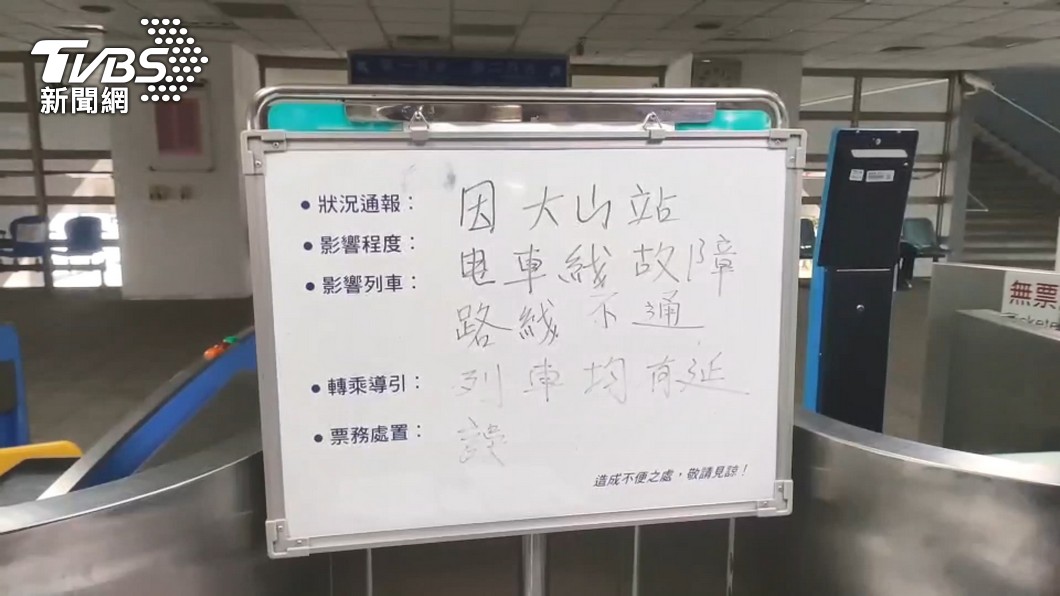 TVBS
新聞網
狀況通報： 因大山站
影響程度： 电車綫故障
影響列車： 路綫不通
轉乘導引： 列車均有延
票務處置： 誤
造成不便之處，敬請見諒！
無票